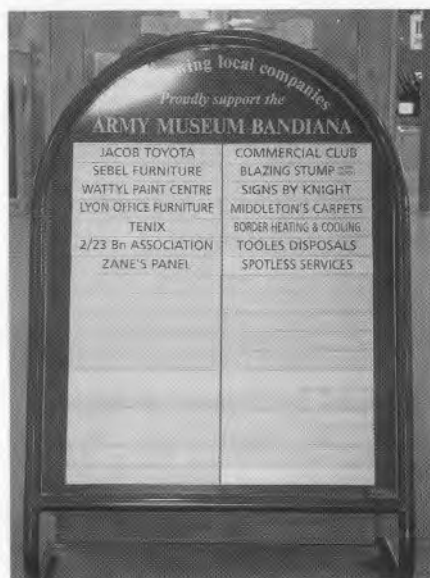 wing local companies
Proudly support the
ARMY MUSEUM BANDIANA
JACOB TOYOTA
SEBEL FURNITURE
WATTYL PAINT CENTRE
LYON OFFICE FURNITURE
TENIX
2/23 Bn ASSOCIATION
ZANE'S PANEL
COMMERCIAL CLUB
BLAZING STUMP
SIGNS BY KNIGHT
MIDDLETON'S CARPETS
BORDER HEATING & COOLING
TOOLES DISPOSALS
SPOTLESS SERVICES